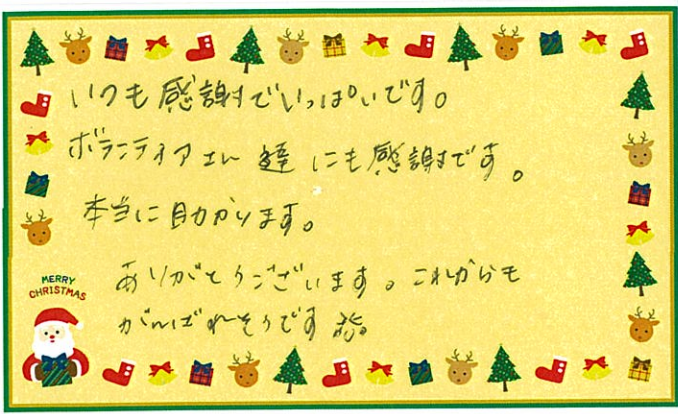 いつも感謝でいっぱいです。
ボランティアさん達にも感謝です。
本当に助かります。
ありがとうございます。これからも
がんばれそうです
MERRY
CHRISTMAS